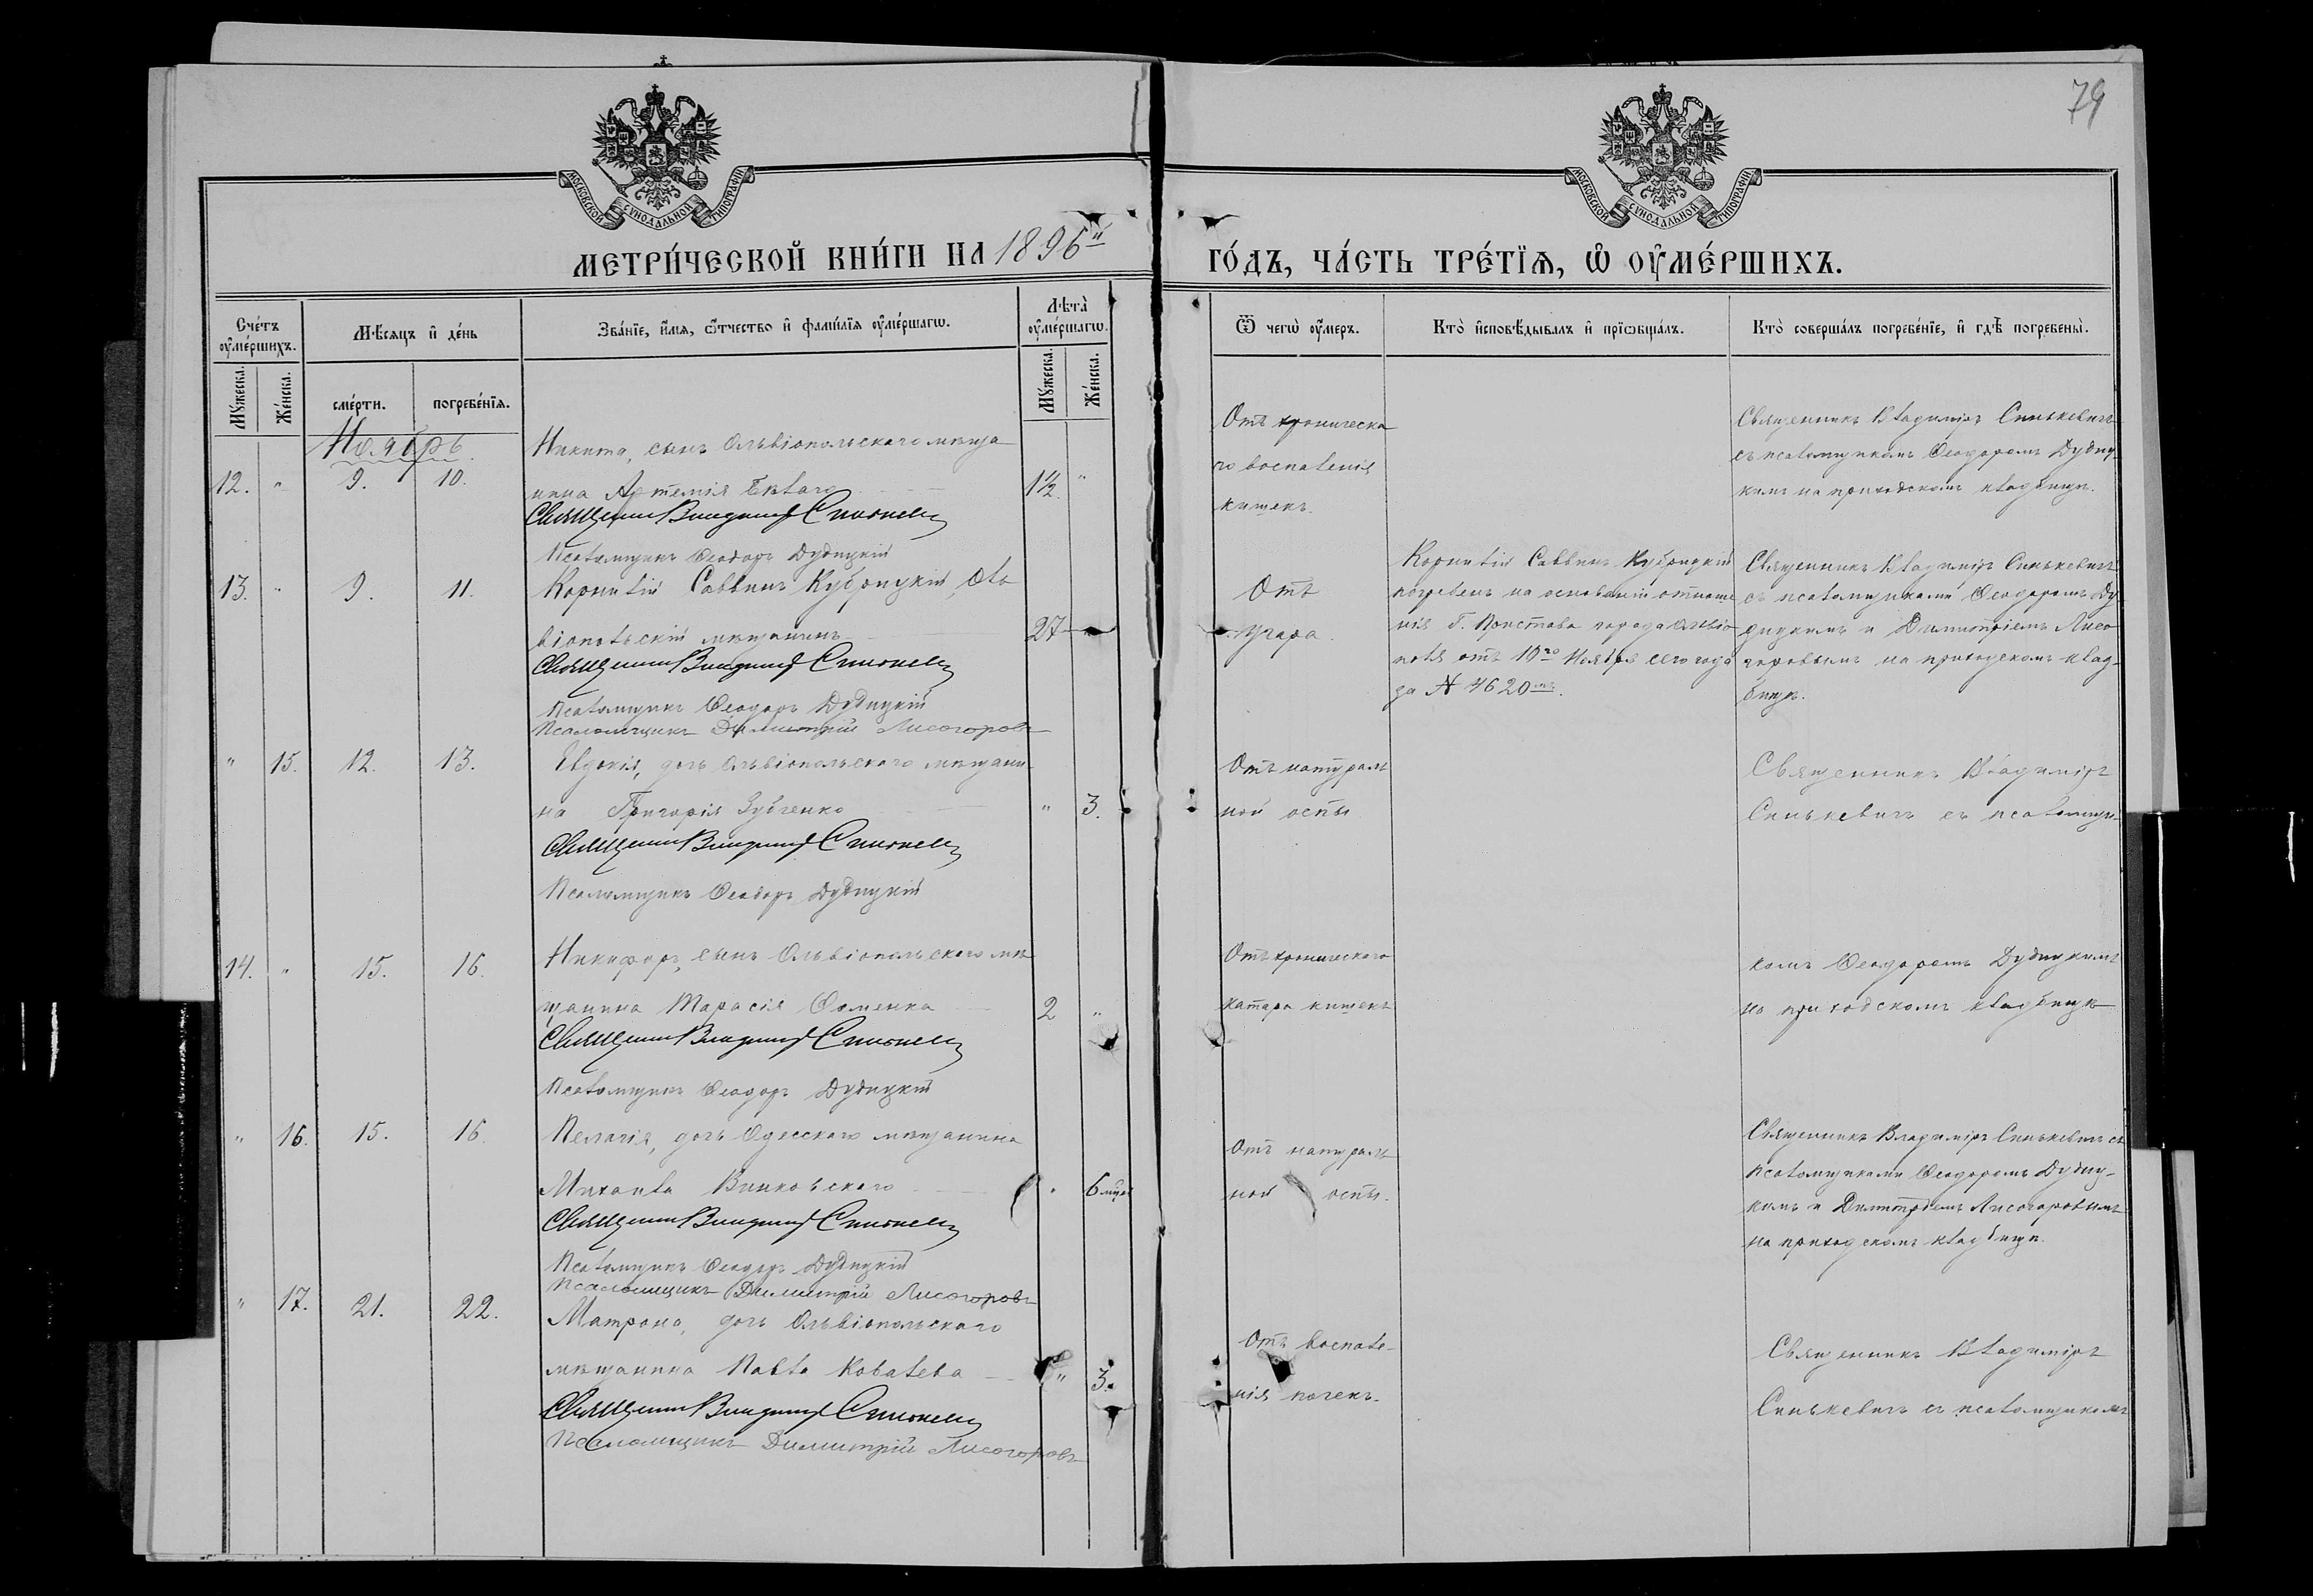 79
МОСКОВСКОЙ СѴНОДАЛЬНОЙ ТИПОГРАФІИ
МОСКОВСКОЙ СѴНОДАЛЬНОЙ ТИПОГРАФІИ
МЕТРИ́ЧЕСКОЙ КНИ́ГИ НА 1896й
ГО́ДЪ, ЧА́СТЬ ТРЕ́ТЇѦ, Ѡ҆ ОУ҆МЕ́РШИХЪ.
Сче́тъ оу҆ме́ршихъ.
Мѣ́сяцъ и҆ де́нь
Зва́нїе, и҆́мѧ, ѻ҆́тчество и҆ фами́лїѧ оу҆ме́ршагѡ.
Лѣта̀ оу҆ме́ршагѡ.
Ѿ чегѡ̀ оу҆́меръ.
Кто̀ и҆сповѣ́дывалъ и҆ прїѡбща́лъ.
Кто̀ соверша́лъ погребе́нїе, и҆ гдѣ̀ погребены̀.
Мꙋ́жеска.
Же́нска.
сме́рти.
погребе́нїѧ.
Мꙋ́жеска.
Же́нска.
Ноябрь.
12. " 9. 10.
Никита, сынъ Ольвіопольскаго мѣща
нина Артемія Бѣлаго
1½ "
Священникъ Владиміръ Синькевичъ
Псаломщикъ Ѳеодоръ Дудицкій
Отъ хроническа
го воспаленія
кишекъ.
Священникъ Владиміръ Синькевичъ
съ псаломщикомъ Ѳеодоромъ Дудиц-
кимъ на приходскомъ кладбищѣ.
13. " 9. 11.
Корнилій Саввинъ Кубрицкій, Оль
віопольскій мѣщанинъ
27
Священникъ Владиміръ Синькевичъ
Псаломщикъ Ѳеодоръ Дудицкій
Псаломщикъ Димитрій Лисогоровъ
Отъ
угара.
Корнилій Саввинъ Кубрицкій
погребенъ на основаніи отноше
нія Г. Пристава города Ольвіо
поля отъ 10го Ноября сего года
за № 4620мъ.
Священникъ Владиміръ Синькевичъ
съ псаломщиками Ѳеодоромъ Ду
дицкимъ и Димитріемъ Лисо
горовымъ на приходскомъ клад-
бищѣ.
" 15. 12. 13.
Евдокія, дочь Ольвіопольскаго мѣщани-
на Григорія Зубченко
" 3.
Священникъ Владиміръ Синькевичъ
Псаломщикъ Ѳеодоръ Дудицкій
Отъ натураль
ной оспы
Священникъ Владиміръ
Синькевичъ съ псаломщи-
14. " 15. 16.
Никифоръ, сынъ Ольвіопольскаго мѣ
щанина Тарасія Ѳоменка
2 "
Священникъ Владиміръ Синькевичъ
Псаломщикъ Ѳеодоръ Дудицкій
Отъ хроническаго
катара кишекъ
комъ Ѳеодоромъ Дудицкимъ
на приходскомъ кладбищѣ
" 16. 15. 16.
Пелагія, дочь Одесскаго мѣщанина
Михаила Винковскаго
" 6 мцев
Священникъ Владиміръ Синькевичъ
Псаломщикъ Ѳеодоръ Дудицкій
Псаломщикъ Димитрій Лисогоровъ
Отъ натураль
ной оспы.
Священникъ Владиміръ Синькевичъ съ
псаломщиками Ѳеодоромъ Дудиц-
кимъ и Димитріемъ Лисогоровымъ
на приходскомъ кладбищѣ.
" 17. 21. 22.
Матрона, дочь Ольвіопольскаго
мѣщанина Павла Ковалева
" 3.
Священникъ Владиміръ Синькевичъ
Псаломщикъ Димитрій Лисогоровъ
Отъ воспале-
нія почекъ.
Священникъ Владиміръ
Синькевичъ съ псаломщикомъ